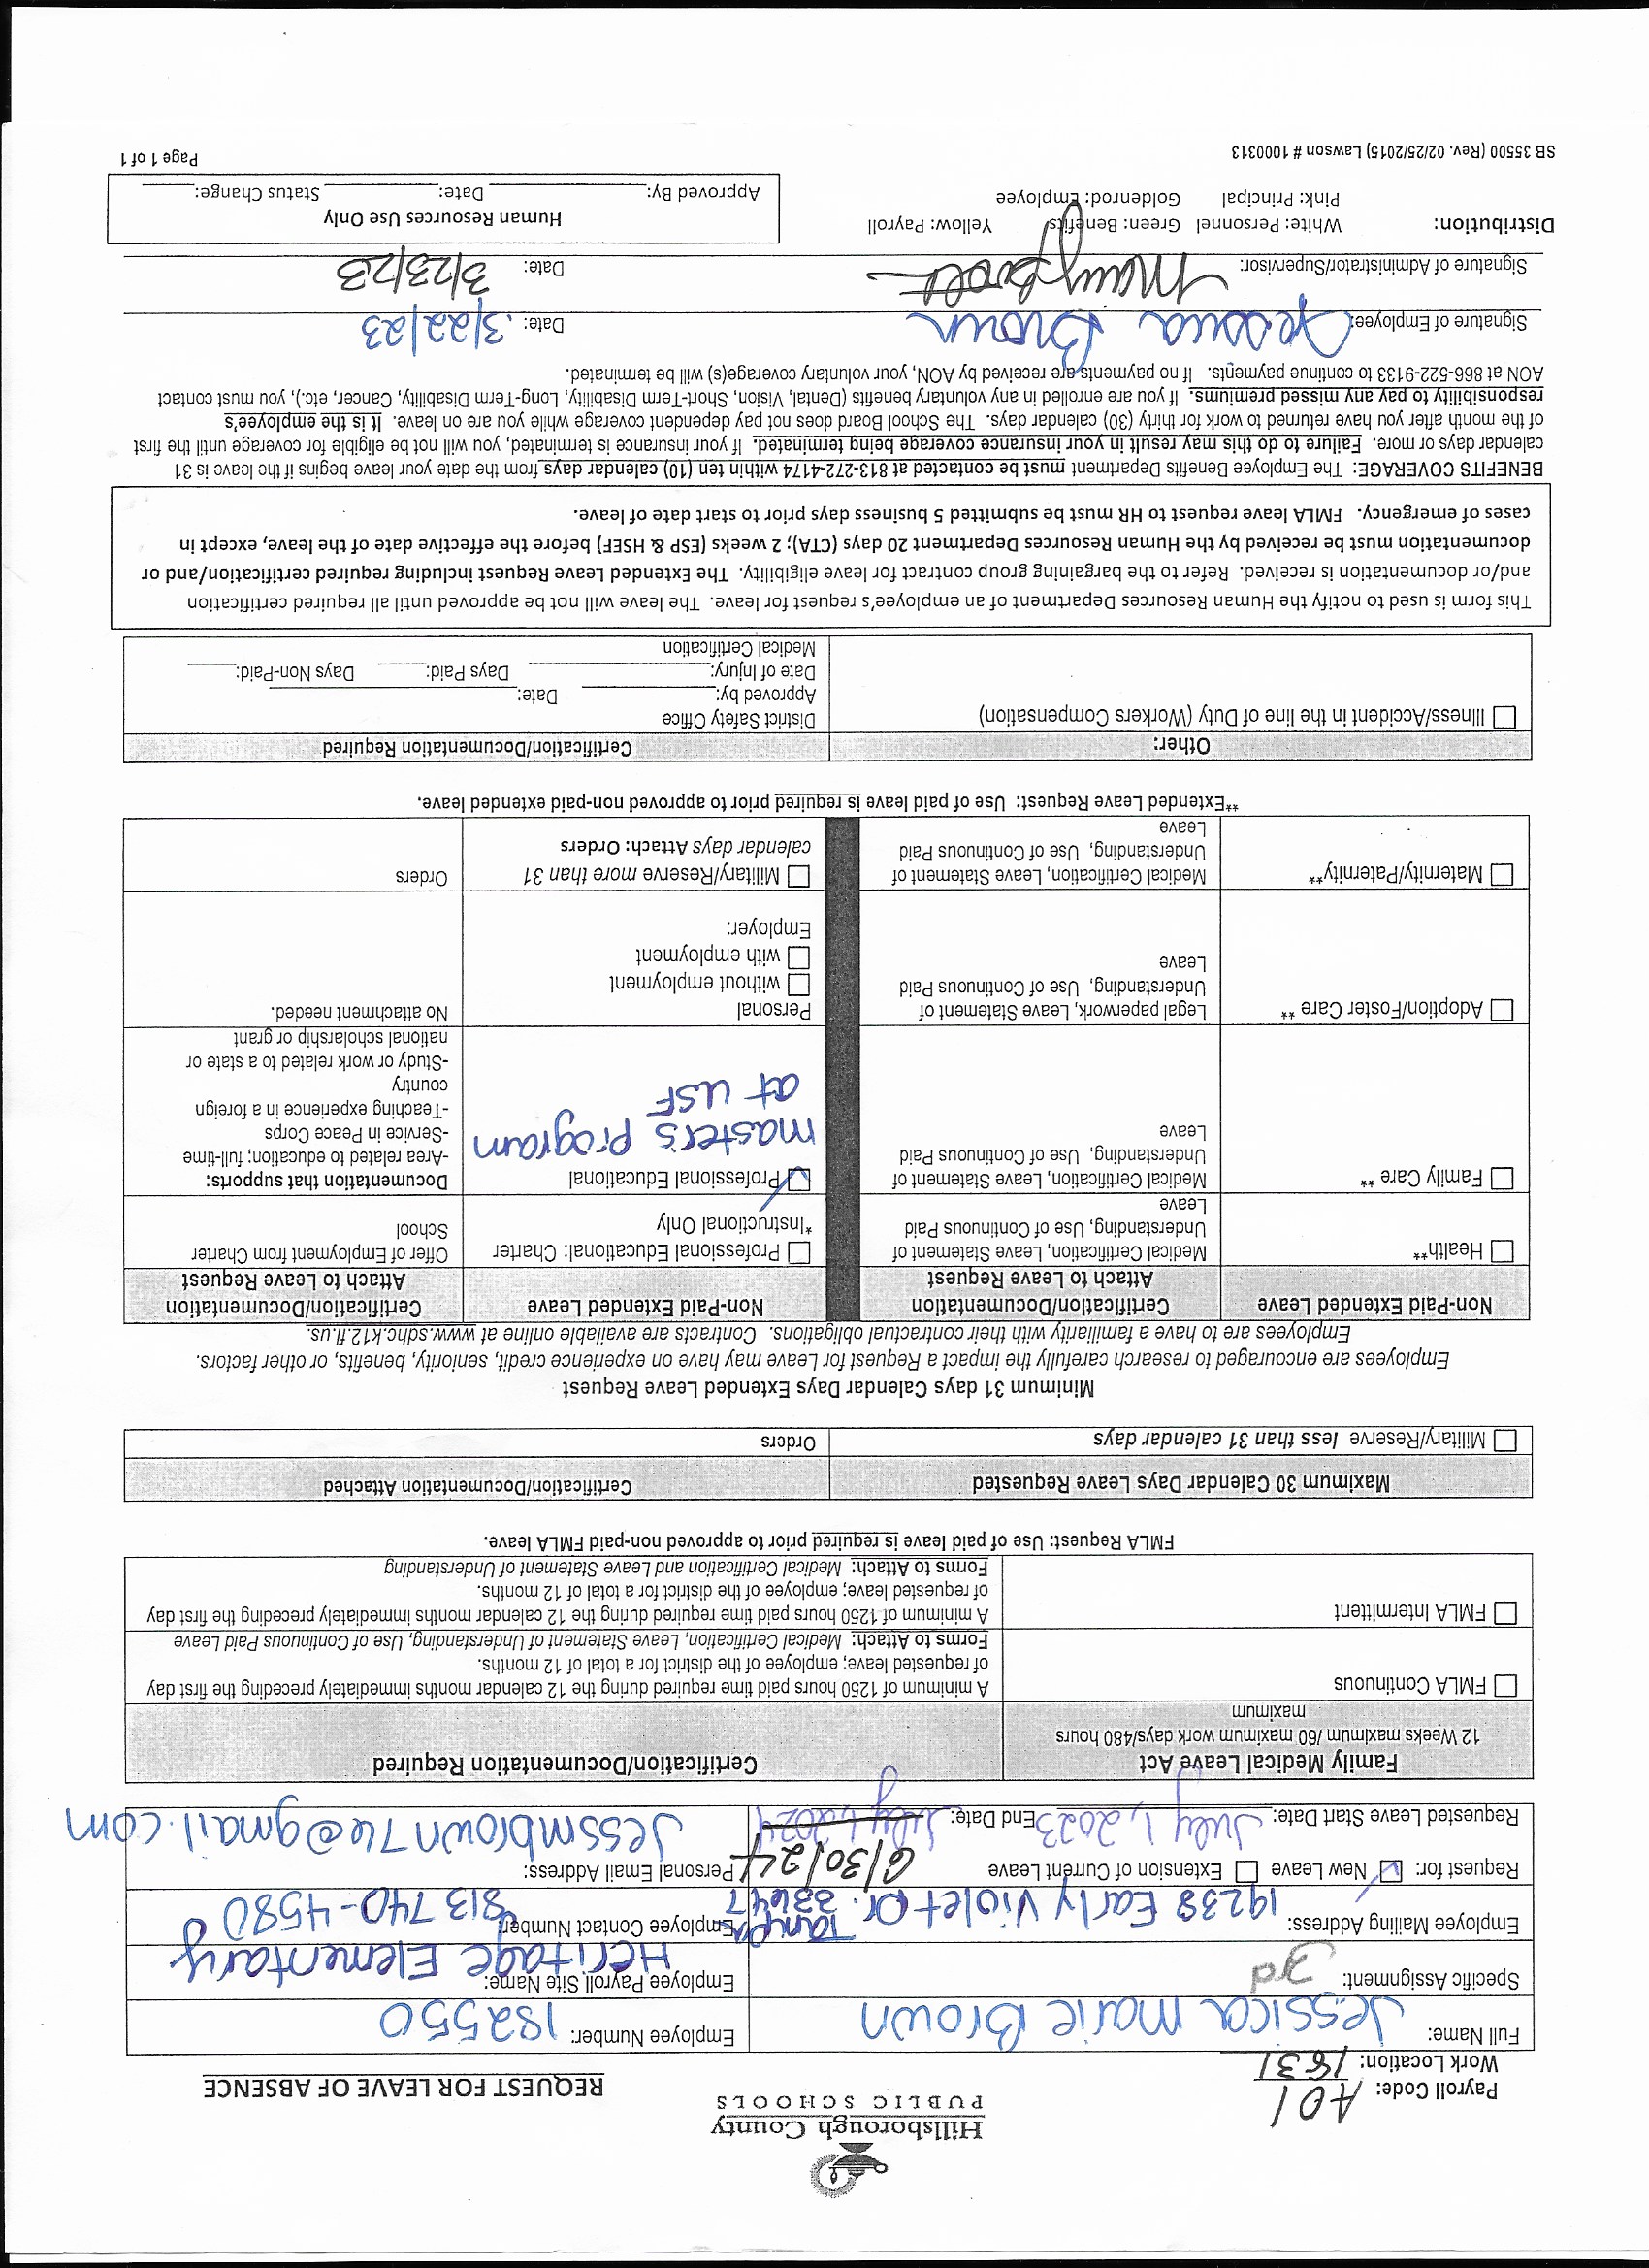 Hillsborough County
PUBLIC SCHOOLS
Payroll Code: A01
Work Location: 1831
REQUEST FOR LEAVE OF ABSENCE
Full Name: Jessica Marie Brown
Employee Number: 182550
Specific Assignment: 3rd
Employee Payroll Site Name: Heritage Elementary
Employee Mailing Address: 19238 Early Violet Dr. Tampa 33647
Employee Contact Number: 813 740-4580
Request for: ☑ New Leave ☐ Extension of Current Leave
Personal Email Address: Jessmbrown74@gmail.com
Requested Leave Start Date: July 1, 2023 End Date: July 1, 2024 6/30/24
Family Medical Leave Act
12 Weeks maximum /60 maximum work days/480 hours
maximum
Certification/Documentation Required
☐ FMLA Continuous
A minimum of 1250 hours paid time required during the 12 calendar months immediately preceding the first day
of requested leave; employee of the district for a total of 12 months.
Forms to Attach: Medical Certification, Leave Statement of Understanding, Use of Continuous Paid Leave
☐ FMLA Intermittent
A minimum of 1250 hours paid time required during the 12 calendar months immediately preceding the first day
of requested leave; employee of the district for a total of 12 months.
Forms to Attach: Medical Certification and Leave Statement of Understanding
FMLA Request: Use of paid leave is required prior to approved non-paid FMLA leave.
Maximum 30 Calendar Days Leave Requested
Certification/Documentation Attached
☐ Military/Reserve less than 31 calendar days
Orders
Minimum 31 days Calendar Days Extended Leave Request
Employees are encouraged to research carefully the impact a Request for Leave may have on experience credit, seniority, benefits, or other factors.
Employees are to have a familiarity with their contractual obligations. Contracts are available online at www.sdhc.k12.fl.us.
Non-Paid Extended Leave
Certification/Documentation
Attach to Leave Request
Non-Paid Extended Leave
Certification/Documentation
Attach to Leave Request
☐ Health**
Medical Certification, Leave Statement of
Understanding, Use of Continuous Paid
Leave
☐ Professional Educational: Charter
*Instructional Only
Offer of Employment from Charter
School
☐ Family Care **
Medical Certification, Leave Statement of
Understanding, Use of Continuous Paid
Leave
☑ Professional Educational
masters program
at USF
Documentation that supports:
-Area related to education; full-time
-Service in Peace Corps
-Teaching experience in a foreign
country
-Study or work related to a state or
national scholarship or grant
☐ Adoption/Foster Care **
Legal paperwork, Leave Statement of
Understanding, Use of Continuous Paid
Leave
Personal
☐ Without employment
☐ With employment
Employer:
No attachment needed.
☐ Maternity/Paternity**
Medical Certification, Leave Statement of
Understanding, Use of Continuous Paid
Leave
☐ Military/Reserve more than 31
calendar days Attach: Orders
Orders
**Extended Leave Request: Use of paid leave is required prior to approved non-paid extended leave.
Other:
Certification/Documentation Required
☐ Illness/Accident in the line of Duty (Workers Compensation)
District Safety Office
Approved by: Date:
Date of Injury: Days Paid: Days Non-Paid:
Medical Certification
This form is used to notify the Human Resources Department of an employee's request for leave. The leave will not be approved until all required certification
and/or documentation is received. Refer to the bargaining group contract for leave eligibility. The Extended Leave Request including required certification/and or
documentation must be received by the Human Resources Department 20 days (CTA); 2 weeks (ESP & HSEF) before the effective date of the leave, except in
cases of emergency. FMLA leave request to HR must be submitted 5 business days prior to start date of leave.
BENEFITS COVERAGE: The Employee Benefits Department must be contacted at 813-272-4174 within ten (10) calendar days from the date your leave begins if the leave is 31
calendar days or more. Failure to do this may result in your insurance coverage being terminated. If your insurance is terminated, you will not be eligible for coverage until the first
of the month after you have returned to work for thirty (30) calendar days. The School Board does not pay dependent coverage while you are on leave. It is the employee's
responsibility to pay any missed premiums. If you are enrolled in any voluntary benefits (Dental, Vision, Short-Term Disability, Long-Term Disability, Cancer, etc.), you must contact
AON at 866-522-9133 to continue payments. If no payments are received by AON, your voluntary coverage(s) will be terminated.
Signature of Employee: Jessica Brown Date: 3/22/23
Signature of Administrator/Supervisor: Mary Booth Date: 3/23/23
Distribution: White: Personnel Green: Benefits Yellow: Payroll
Pink: Principal Goldenrod: Employee
Human Resources Use Only
Approved By: Date: Status Change:
SB 35500 (Rev. 02/25/2015) Lawson # 1000313
Page 1 of 1